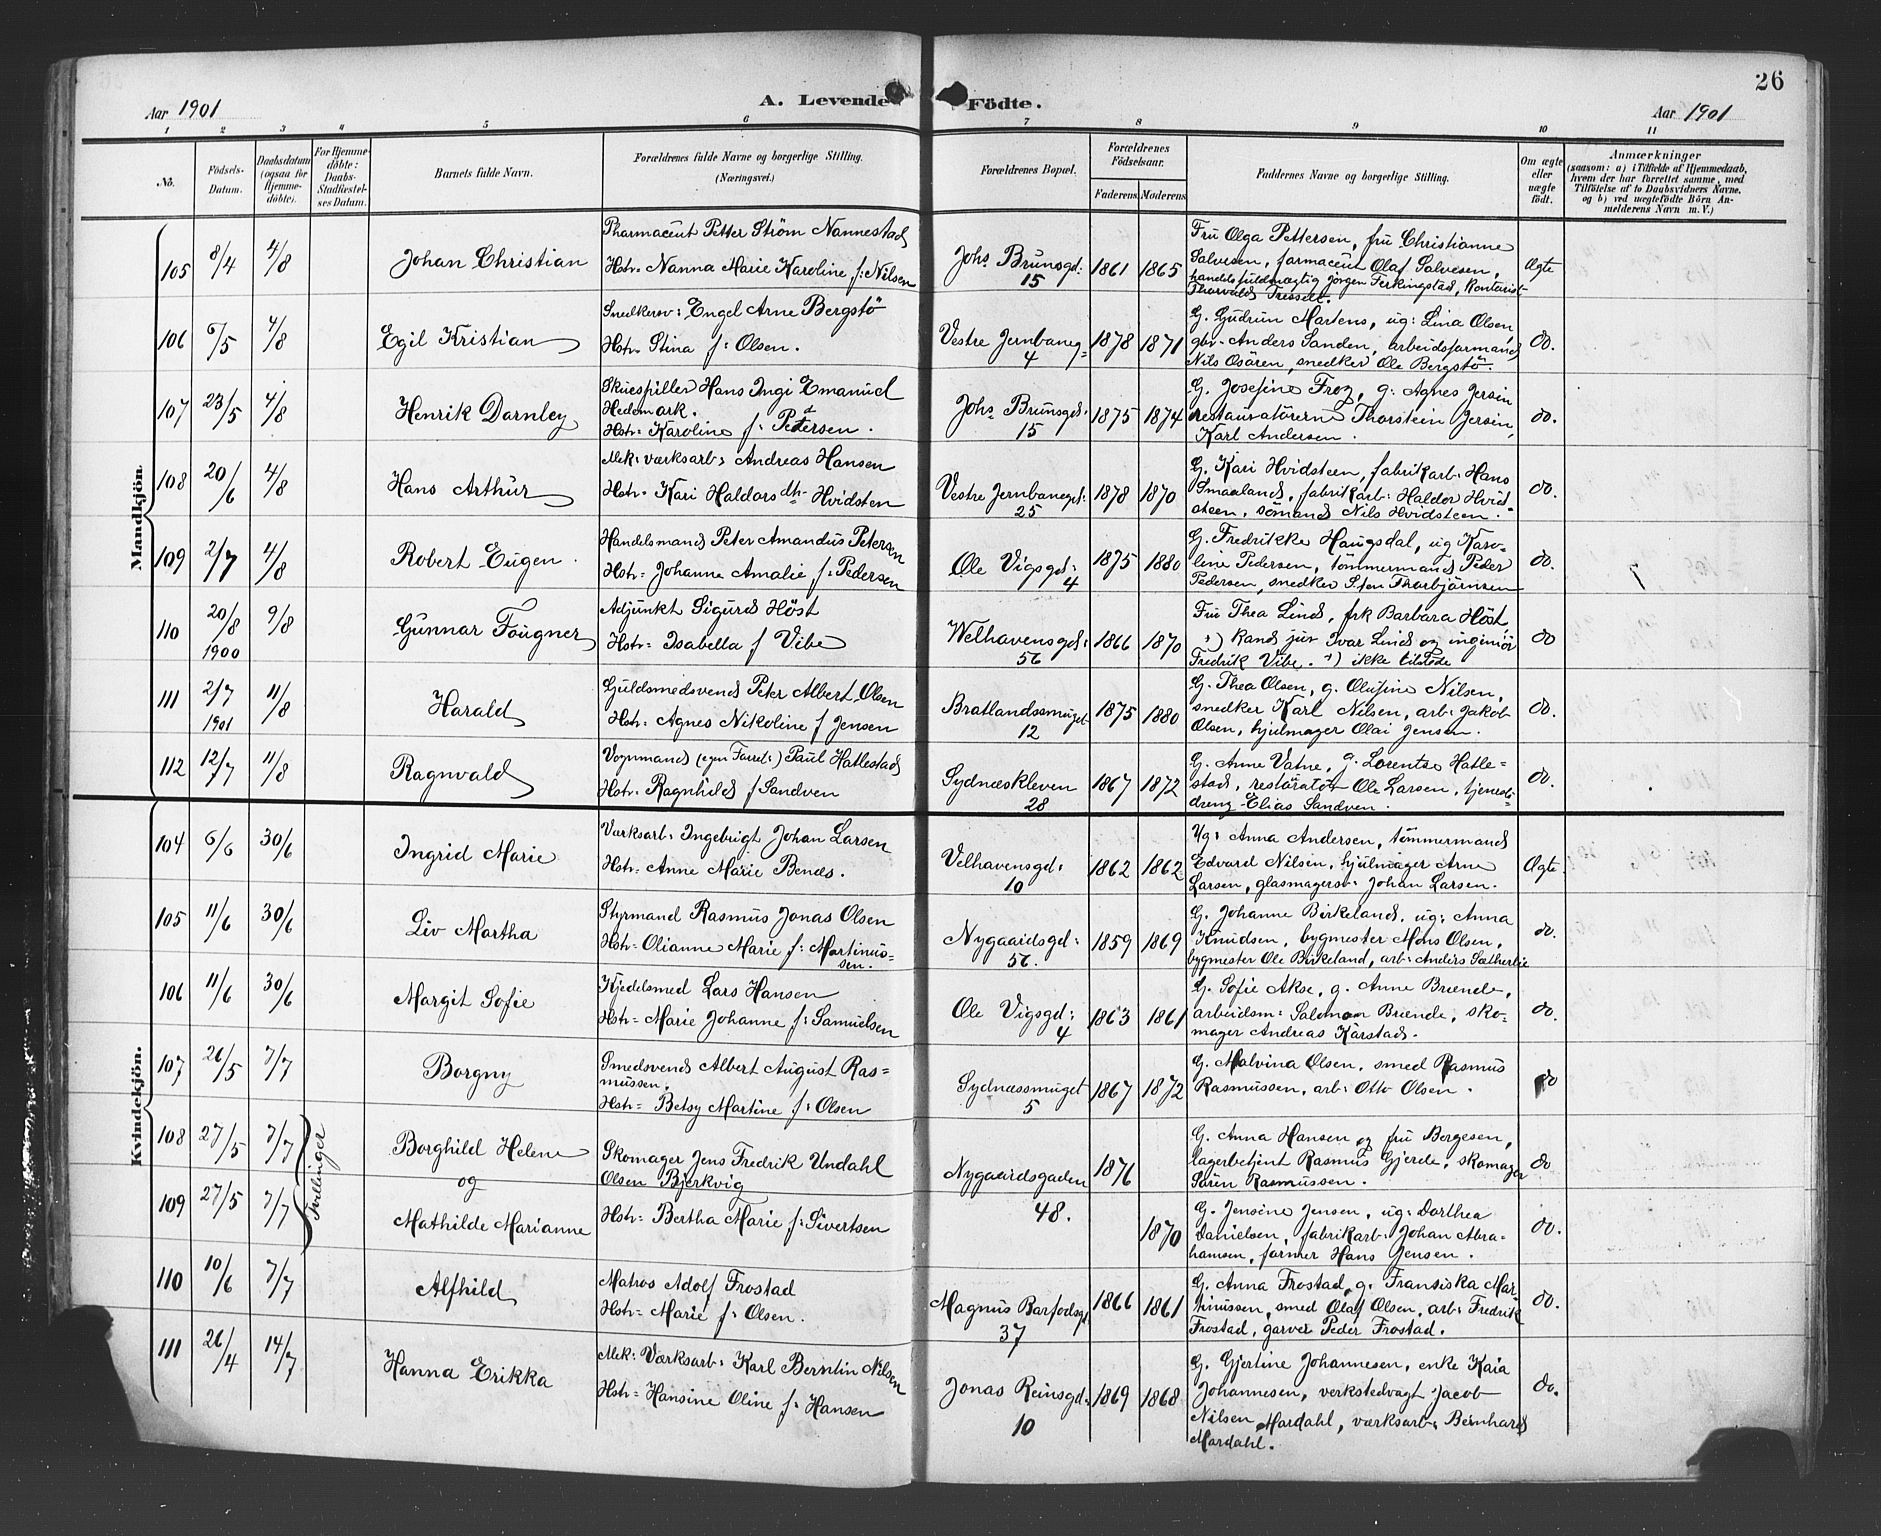 26
Aar 1901
A. Levende Födte.
Aar 1901
1 2 3 4 5 6 7 8 9 10 11
No.
Födsels-Datum.
Daabsdatum (ogsaa for Hjemmedöbte).
For Hjemmedöbte: Daabs-Stadfæstelses Datum.
Barnets fulde Navn.
Forældrenes fulde Navne og borgerlige Stilling. (Næringsvei.)
Forældrenes Bopæl.
Forældrenes Födselsaar.
Faderens.
Moderens.
Faddernes Navne og borgerlige Stilling.
Om ægte eller uægte födt.
Anmærkninger
(saasom: a) i Tilfælde af Hjemmedaab,
hvem der har forrettet samme, med
Tilföielse af to Daabsvidners Navne,
og b) ved uægtefödte Börn An-
melderens Navn m. V.)
Mandkjön.
105 8/4 4/8 Johan Christian
Pharmaceut Petter Ström Nannestad
Hstr. Nanna Marie Karoline f: Nilsen
Johs Brunsgd: 15 1861 1865
Fru Olga Pettersen, fru Christianne
Salvesen, farmaceut Olaf Salvesen,
handelsfuldmægtig Jörgen Ferkingstad, kontorist
Ægte
106 6/5 4/8 Egil Kristian
Snedkersv: Engel Arne Bergstö
Hstr. Stina f: Olsen.
Vestre Jernbaneg= 4 1878 1871
G. Gudrun Martens, ug: Lina Olsen,
gbr. Anders Sanden, arbeidsformand
Nils Osören, snedker Ole Bergstö.
do.
107 23/5 4/8 Henrik Darnley
Skuespiller Hans Ingi Emanuel
Hedemark.
Hstr= Karoline f: Pedersen.
Johs Brunsgd. 15 1875 1874
G. Josefine Froz, g: Agnes Jersin
restauratörerne Thorstein Jersin,
Karl Andersen.
do.
108 20/6 4/8 Hans Arthur
Mek: værksarb: Andreas Hansen
Hstr. Kari Haldorsdtr Hvidsten
Vestre Jernbanegd: 25 1878 1870
G. Kari Hvidsteen, fabrikarb: Hans
Smaaland, fabrikarb: Haldor Hvid-
steen, sömand Nils Hvidsteen.
do.
109 2/7 4/8 Robert Eugen.
Handelsmand Peter Amandus Petersen
Hstr. Johanne Amalie f: Pedersen
Ole Vigsgd: 4 1875 1880
G. Fredrikke Haugsdal, ug Karo-
line Pedersen, tömmermand Peder
Pedersen, snedker Sten Thorbjörnsen
do.
110 20/8 1900 9/8 Gunnar Fougner
Adjunkt Sigurd Höst
Hstr= Isabella f Vibe
Welhavensgd: 56 1866 1870
Fru Thea Lind, frk Barbara Höst,
1) kand jur Ivar Lind og ingeniör
Fredrik Vibe. 1) ikke tilstede
do
111 2/7 1901 11/8 Harald
Guldsmedsvend Peter Albert Olsen
Hstr= Agnes Nikoline f Jensen
Bratlandssmuget 12 1875 1880
G. Thea Olsen, g. Olufine Nilsen,
snedker Karl Nilsen, arb: Jakob
Olsen, hjulmager Olai Jensen.
do.
112 12/7 11/8 Ragnvald
Vognmand (egen Forret:) Paul Hatlestad
Hstr. Ragnhild f Sandven
Sydnæskleven 28 1867 1872
G. Anne Vatne, g. Lorentse Hatle=
stad, restöratör Ole Larsen, tjeneste
dreng Elias Sandven.
do.
Kvindekjön.
104 6/6 30/6 Ingrid Marie
Værksarb: Ingebrigt Johan Larsen
Hstr. Anne Marie Bends.
Velhavensgd: 10 1862 1862
Ug: Anna Andersen, tömmermand
Edvard Nilsen, hjulmager Arne
Larsen, glasmagersv: Johan Larsen.
Ægte.
105 11/6 30/6 Liv Martha
Styrmand Rasmus Jonas Olsen
Hstr= Olianne Marie f: Martinus=
sen.
Nygaardsgd: 56. 1859 1869
G. Johanne Birkeland, ug: Anna
Knudsen, bygmester Mons Olsen,
bygmester Ole Birkeland, arb: Anders Sætherlie
do.
106 11/6 30/6 Margit Sofie
Kjedelsmed Lars Hansen
Hstr= Marie Johanne f: Samuelsen
Ole Vigsgd: 4 1863 1861
G. Sofie Akse, g. Anne Briende,
arbeidsm: Salomon Briende, sko-
mager Andreas Kårstad.
do.
107 26/5 7/7 Borgny
Smedsvend Albert August Ras=
mussen.
Hstr= Betsy Martine f: Olsen
Sydnæssmuget 5 1867 1872
G. Malvina Olsen, smed Rasmus
Rasmussen, arb: Otto Olsen.
do
Tvillinger
108 27/5 7/7 Borghild Helene
og
109 27/5 7/7 Mathilde Marianne
Skomager Jens Fredrik Undahl
Olsen Bjerkvig
Hstr= Bertha Marie f: Sivertsen
Nygaardsgaden 48. 1876 1870
G. Anna Hansen og fru Bergesen,
lagerbetjent Rasmus Gjerde, skomager
Sören Rasmussen.
do
G. Jensine Jensen, ug: Dorthea
Danielsen, fabrikarb: Johan Abra-
hamsen, former Hans Jensen.
do.
110 10/6 7/7 Alfhild
Matros Adolf Frostad
Hstr= Marie f: Olsen.
Magnus Barfodsgd 37 1866 1861
G. Anna Frostad, g: Fransiska Mar-
tinussen, smed Olaf Olsen, arb: Fredrik
Frostad, garver Peder Frostad.
do.
111 26/4 14/7 Hanna Erikka
Mek: Værksarb: Karl Berntin Nilsen
Hstr= Hansine Oline f: Hansen
Jonas Reinsgd: 10 1869 1868
G. Gjertine Johannesen, enke Kaia
Johannesen, verkstedvagt Jacob
Nilsen Mardahl, værksarb: Bernhard
Mardahl.
do.